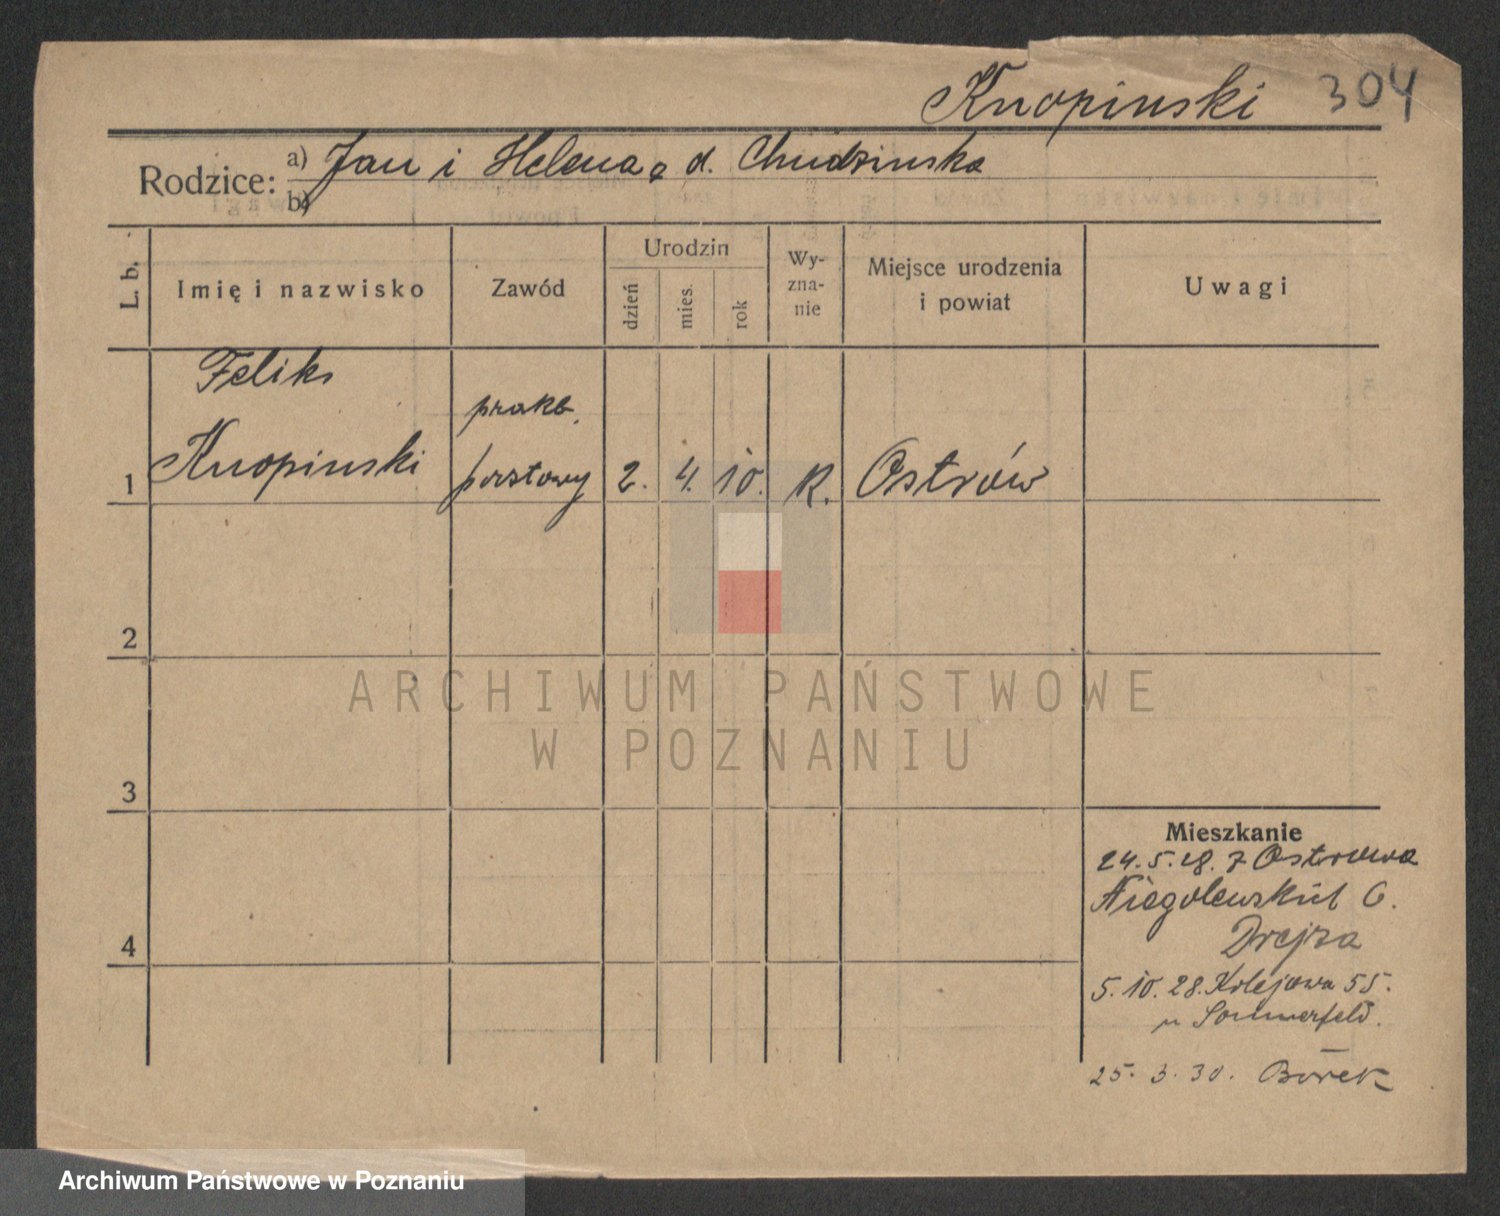 Knopinski 304
Rodzice: a) Jan i Helena z d. Chudzinska
b)
L. b. Imię i nazwisko Zawód Urodzin dzień mies. rok Wy-zna-nie Miejsce urodzenia i powiat Uwagi
Feliks
prakt.
1 Knopinski pocztowy 2. 4. 10. R. Ostrów
2
ARCHIWUM PAŃSTWOWE
W POZNANIU
3
Mieszkanie
24.5.28. z Ostrowa
Niegolewskich 6.
Drejza
4
5.10.28. Kolejowa 55.
u Sommerfeld.
25.3.30. Borek
Archiwum Państwowe w Poznaniu